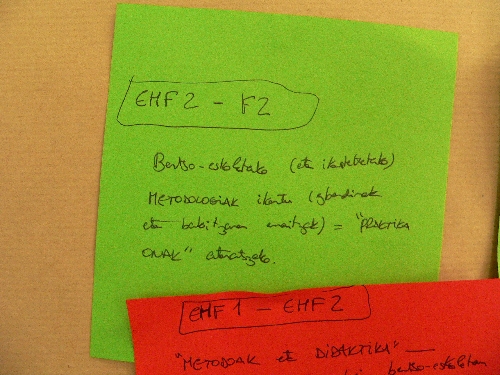 EHF2 - F2
Bertso-eskoletako (eta ikastetxetako)
METODOLOGIAK ikertu (gbardinak
eta bakoitzaren emaitzak) = "PRAKTIKA
ONAK" ateratzeko.
EHF1 - EHF2
"METODOAK eta DIDAKTIKA" —
bertso-eskoletan